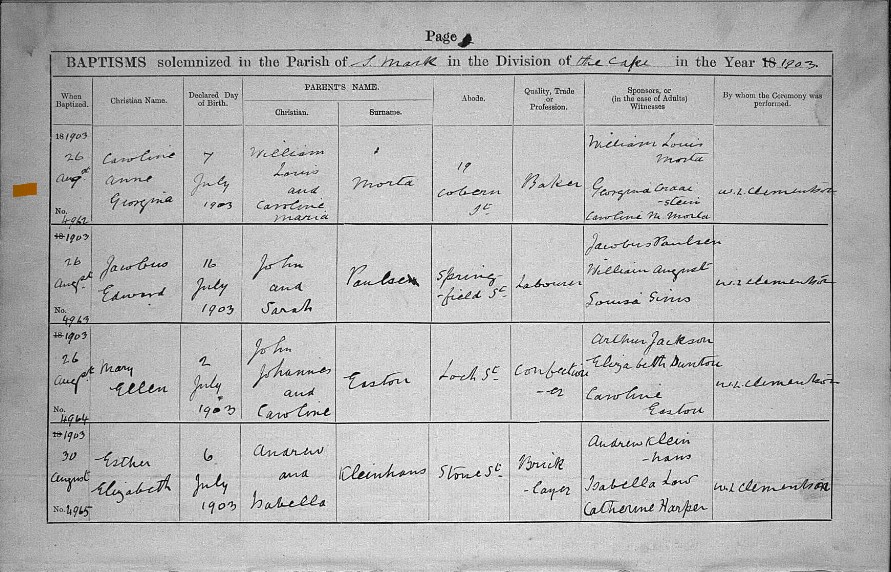 Page
BAPTISMS solemnized in the Parish of S. Mark in the Division of the Cape in the Year 18 1903.
When Baptized.
Christian Name.
Declared Day of Birth.
PARENT'S NAME.
Christian.
Surname.
Abode.
Quality, Trade or Profession.
Sponsors, or (in the case of Adults) Witnesses
By whom the Ceremony was performed.
18 1903
26
Augst
No. 4962
Caroline
Anne
Georgina
7
July
1903
William
Louis
and
Caroline
Maria
Morta
19
Cobern
St.
Baker
William Louis
Morta
Georgina
-stein
Caroline M. Morta
W. L. Clementson
18 1903
26
Augst
No. 4963
Jacobus
Edward
16
July
1903
John
and
Sarah
Paulsen
Spring
-field St.
Labourer
Jacobus Paulsen
William August
Louisa Sims
W. L. Clementson
18 1903
26
Augst
No. 4964
Mary
Ellen
2
July
1903
John
Johannes
and
Caroline
Easton
Loch St.
Confection
-er
Arthur Jackson
Elizabeth Dunton
Caroline
Easton
W. L. Clementson
18 1903
30
August
No. 4965
Esther
Elizabeth
6
July
1903
Andrew
and
Isabella
Kleinhans
Stone St.
Brick
-layer
Andrew Klein
-hans
Isabella Law
Catherine Harper
W. L. Clementson